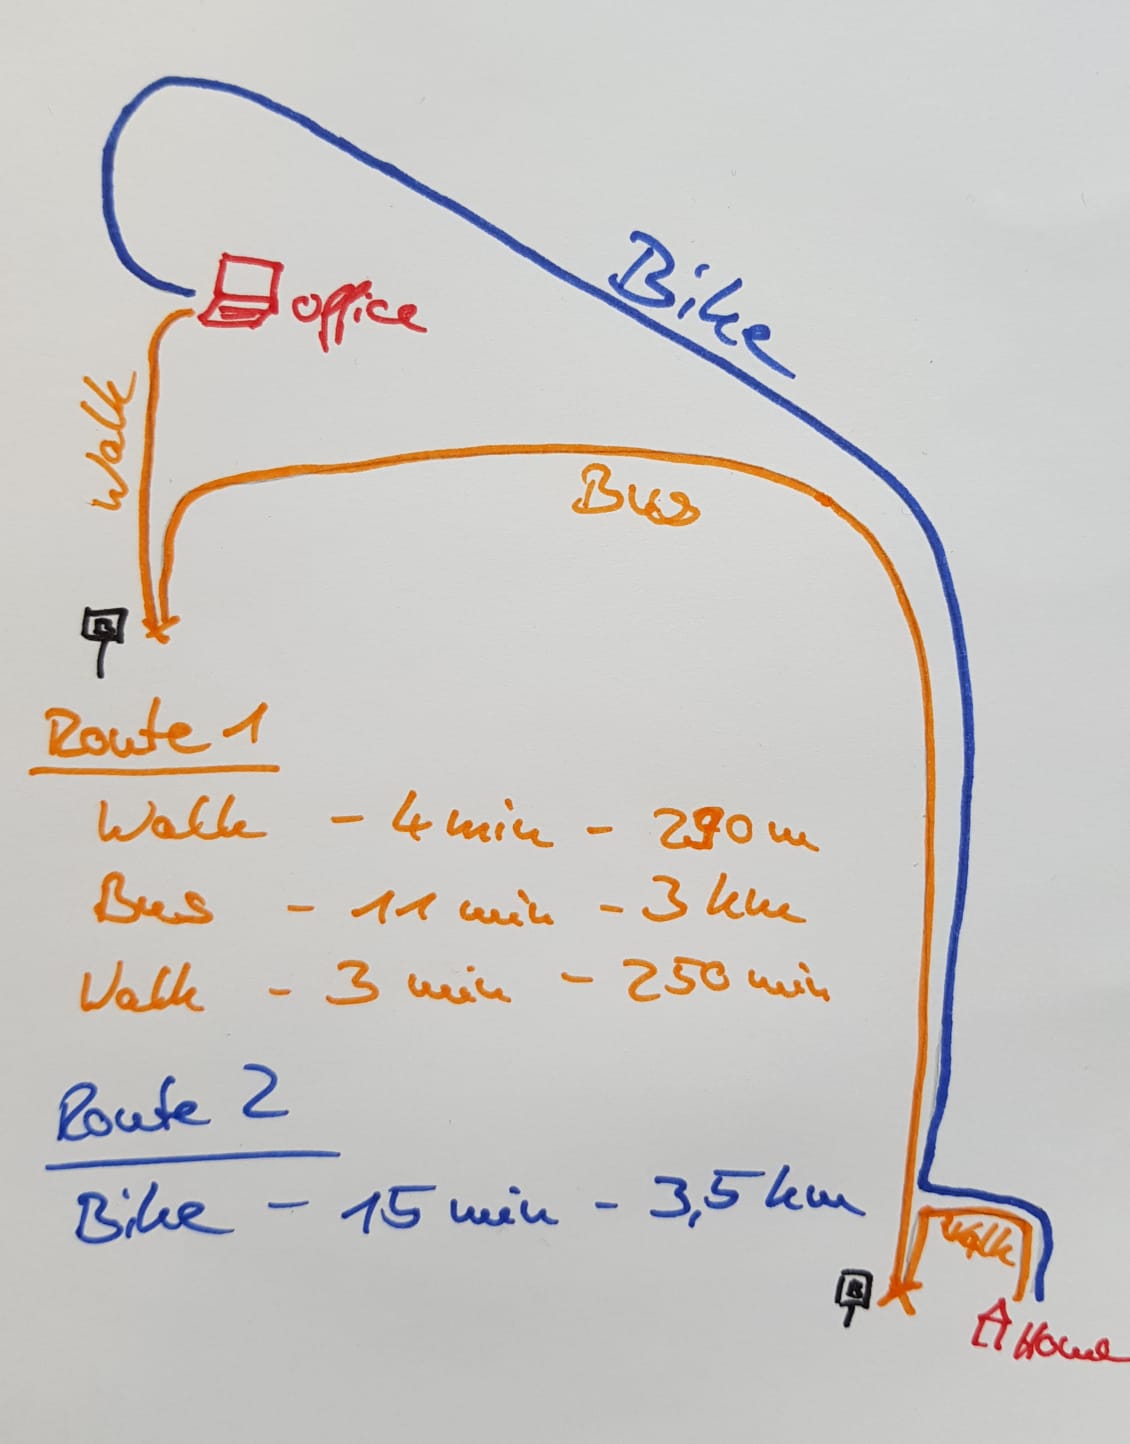 Bike
office
Walk
Bus
B
Route 1
Walk - 4 min - 290 m
Bus - 11 min - 3 km
Walk - 3 min - 250 min
Route 2
Bike - 15 min - 3,5 km
Walk
B
Home